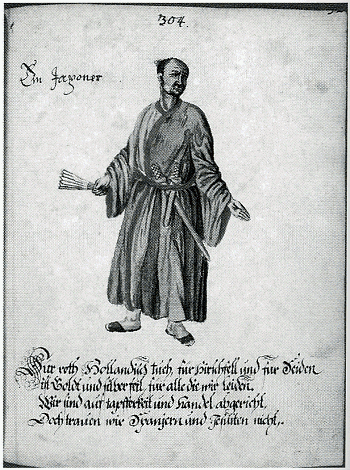 304.
Ein Japoner
Für roth Hollandisch tuch, für Hirschfell und für Seiden
Ist Goldt und silber feil, für alle die wir leiden.
Wir sind auf tapferkeit und handel abgericht,
Doch trauen wir Spanjern und Jesuiten nicht.